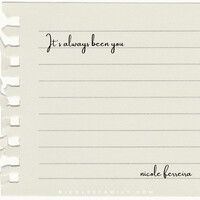 It's always been you
nicole ferreira